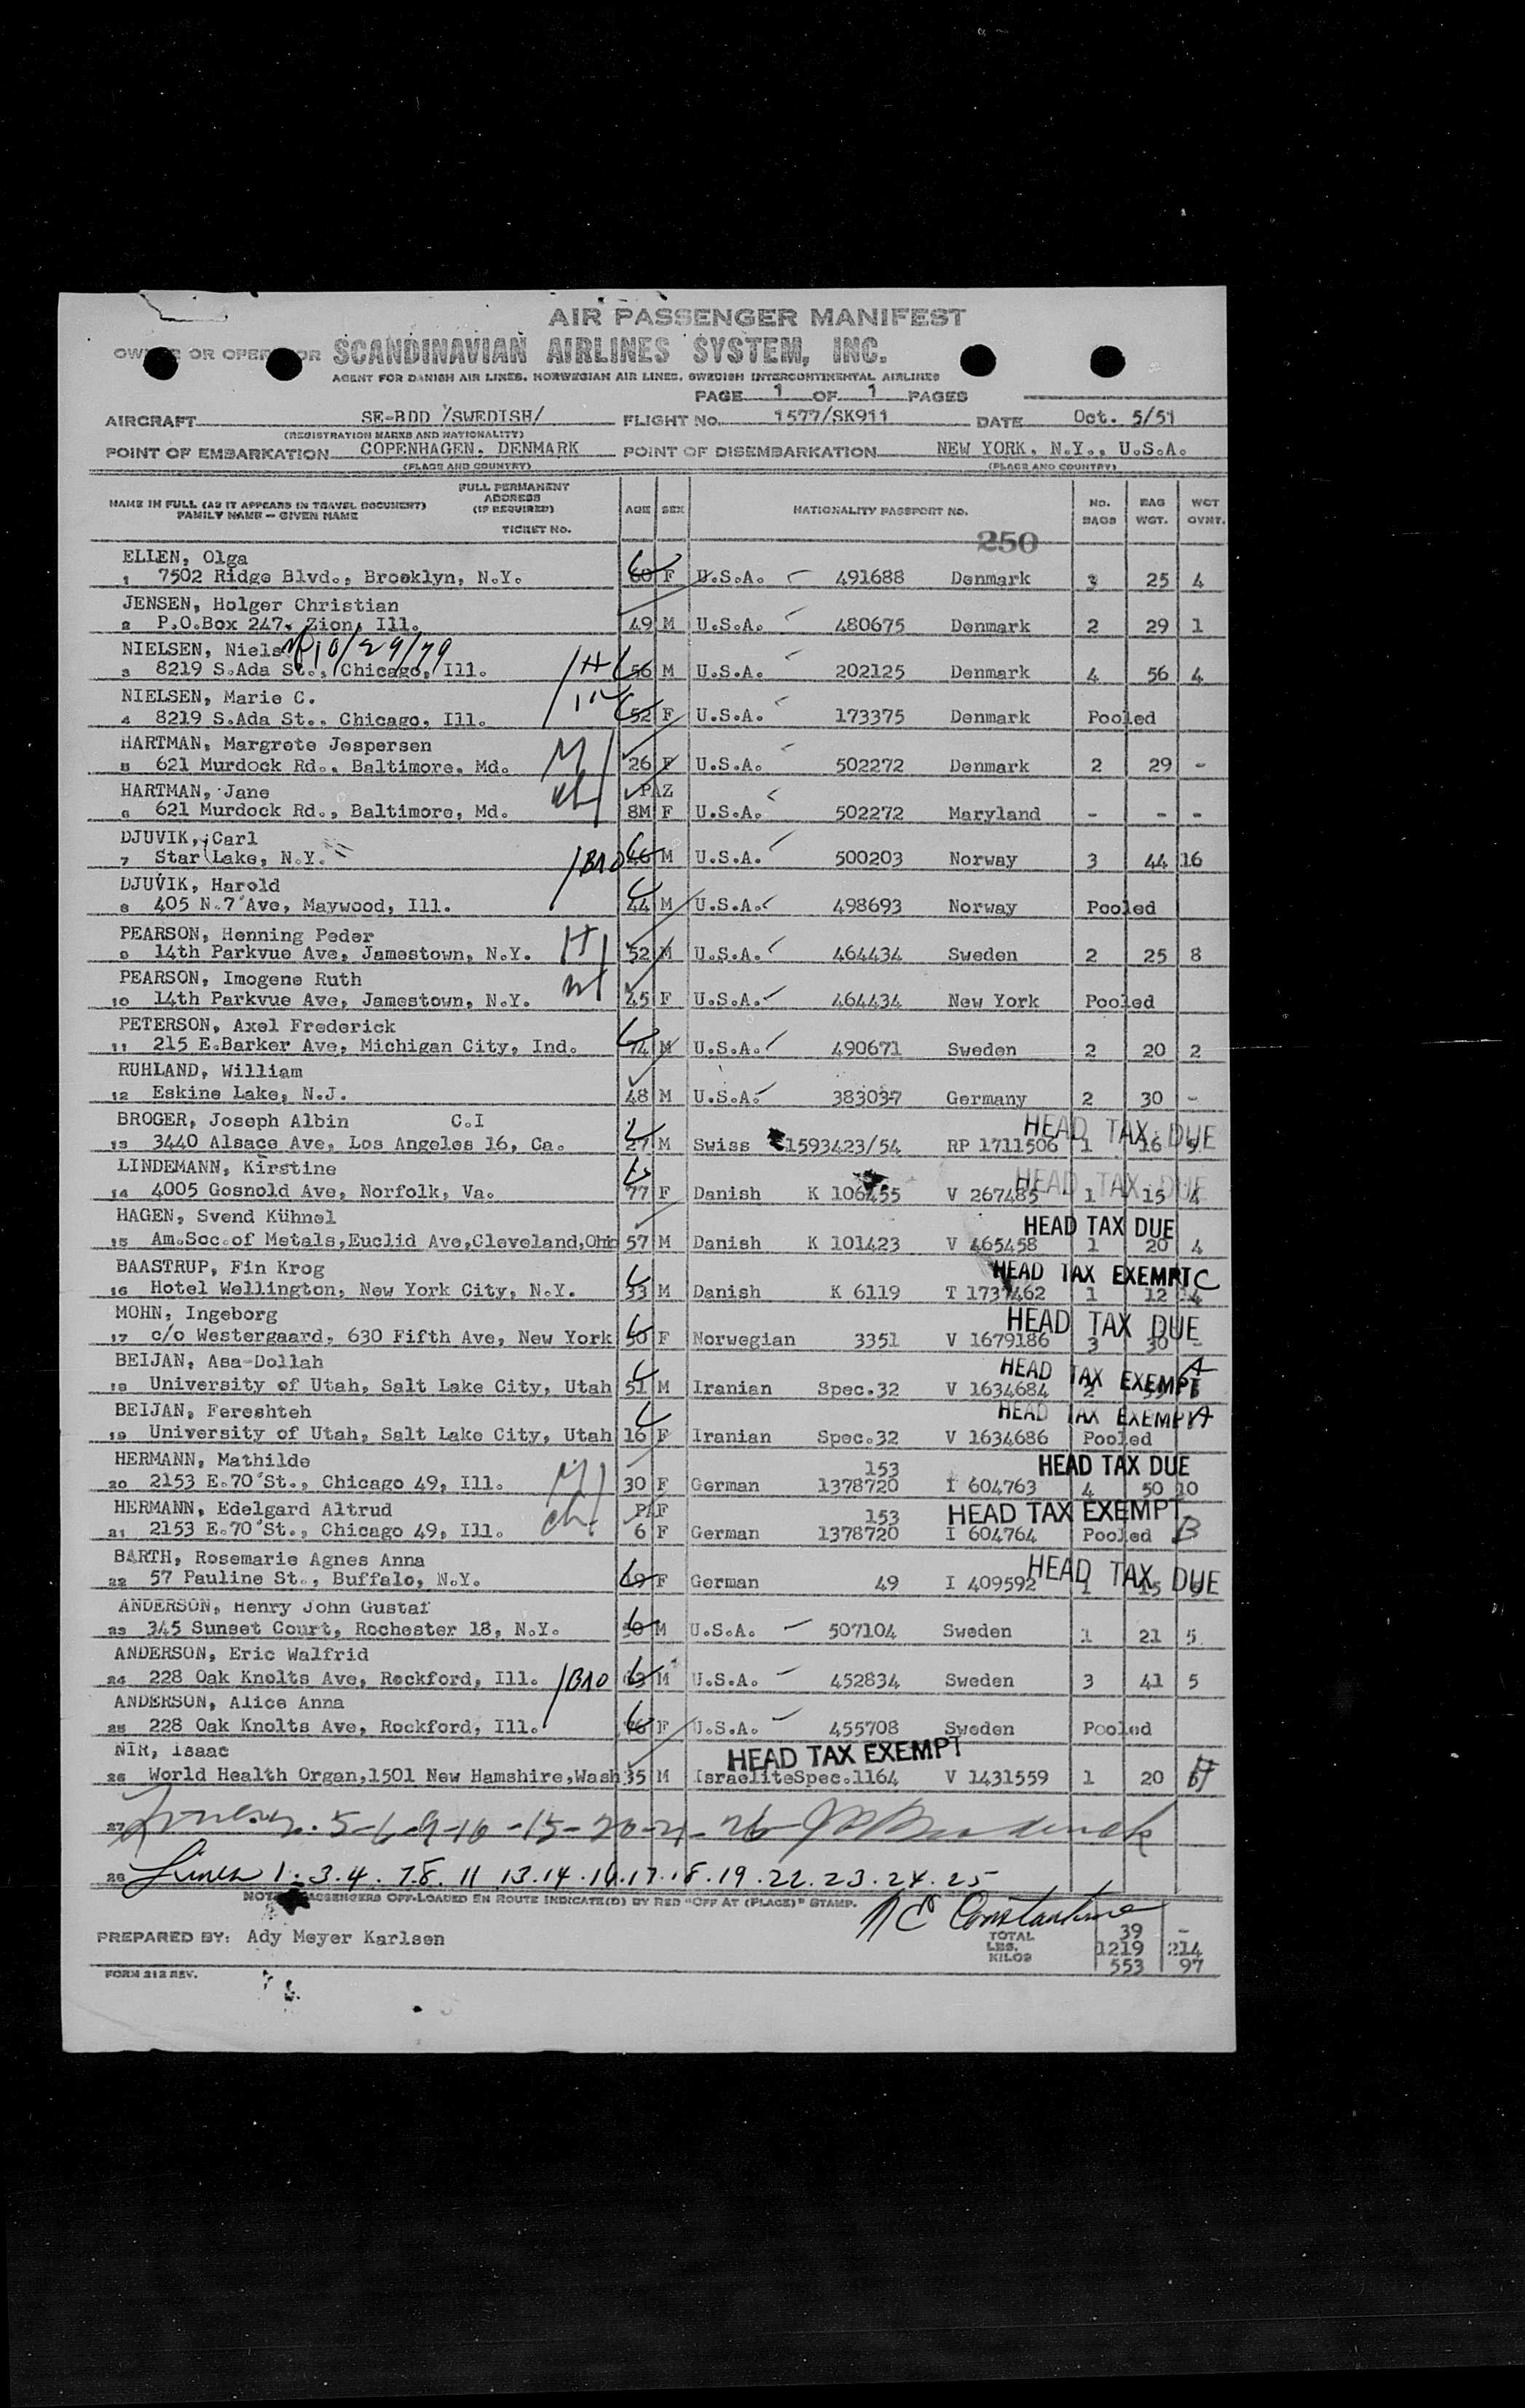 AIR PASSENGER MANIFEST
OWNER OR OPERATOR SCANDINAVIAN AIRLINES SYSTEM, INC.
AGENT FOR DANISH AIR LINES, NORWEGIAN AIR LINES, SWEDISH INTERCONTINENTAL AIRLINES
PAGE 1 OF 1 PAGES
AIRCRAFT SE-BDD /SWEDISH/ FLIGHT NO. 1577/SK911 DATE Oct. 5/51
(REGISTRATION MARKS AND NATIONALITY)
POINT OF EMBARKATION COPENHAGEN, DENMARK POINT OF DISEMBARKATION NEW YORK, N.Y., U.S.A.
(PLACE AND COUNTRY) (PLACE AND COUNTRY)
NAME IN FULL (AS IT APPEARS IN TRAVEL DOCUMENT) FAMILY NAME - GIVEN NAME FULL PERMANENT ADDRESS (IF REQUIRED) TICKET NO. AGE SEX NATIONALITY PASSPORT NO. No. BAGS BAG WGT. WGT OVNT.
250
ELLEN, Olga
1 7502 Ridge Blvd., Brooklyn, N.Y. F U.S.A. 491688 Denmark 3 25 4
JENSEN, Holger Christian
2 P.O.Box 247, Zion, Ill. 49 M U.S.A. 480675 Denmark 2 29 1
NIELSEN, Niels 10/29/79
3 8219 S.Ada St., Chicago, Ill. /H 56 M U.S.A. 202125 Denmark 4 56 4
NIELSEN, Marie C.
4 8219 S.Ada St., Chicago, Ill. 52 F U.S.A. 173375 Denmark Pooled
HARTMAN, Margrete Jespersen
5 621 Murdock Rd., Baltimore, Md. M 26 F U.S.A. 502272 Denmark 2 29 -
HARTMAN, Jane PAZ
6 621 Murdock Rd., Baltimore, Md. ch 8M F U.S.A. 502272 Maryland - - -
DJUVIK, Carl
7 Star Lake, N.Y. /BRO 46 M U.S.A. 500203 Norway 3 44 16
DJUVIK, Harold
8 405 N.7 Ave, Maywood, Ill. 44 M U.S.A. 498693 Norway Pooled
PEARSON, Henning Peder
9 14th Parkvue Ave, Jamestown, N.Y. H 52 M U.S.A. 464434 Sweden 2 25 8
PEARSON, Imogene Ruth
10 14th Parkvue Ave, Jamestown, N.Y. W 45 F U.S.A. 464434 New York Pooled
PETERSON, Axel Frederick
11 215 E.Barker Ave, Michigan City, Ind. 74 M U.S.A. 490671 Sweden 2 20 2
RUHLAND, William
12 Eskine Lake, N.J. 48 M U.S.A. 383037 Germany 2 30 -
BROGER, Joseph Albin C.I HEAD TAX DUE
13 3440 Alsace Ave, Los Angeles 16, Ca. 27 M Swiss 1593423/54 RP 1711506 1 16 5
LINDEMANN, Kirstine HEAD TAX DUE
14 4005 Gosnold Ave, Norfolk, Va. 77 F Danish K 106455 V 267485 1 15 4
HAGEN, Svend Kühnel HEAD TAX DUE
15 Am.Soc.of Metals,Euclid Ave,Cleveland,Ohio 57 M Danish K 101423 V 465458 1 20 4
BAASTRUP, Fin Krog HEAD TAX EXEMPT C
16 Hotel Wellington, New York City, N.Y. 33 M Danish K 6119 T 1737462 1 12 4
MOHN, Ingeborg HEAD TAX DUE
17 c/o Westergaard, 630 Fifth Ave, New York 50 F Norwegian 3351 V 1679186 3 30 -
BEIJAN, Asa-Dollah HEAD TAX EXEMPT A
18 University of Utah, Salt Lake City, Utah 51 M Iranian Spec.32 V 1634684 2
BEIJAN, Fereshteh HEAD TAX EXEMPT A
19 University of Utah, Salt Lake City, Utah 16 F Iranian Spec.32 V 1634686 Pooled
HERMANN, Mathilde 153 HEAD TAX DUE
20 2153 E.70 St., Chicago 49, Ill. M 30 F German 1378720 I 604763 4 50 10
HERMANN, Edelgard Altrud PAF 153 HEAD TAX EXEMPT
21 2153 E.70 St., Chicago 49, Ill. ch 6 F German 1378720 I 604764 Pooled B
BARTH, Rosemarie Agnes Anna HEAD TAX DUE
22 57 Pauline St., Buffalo, N.Y. F German 49 I 409592 1 15
ANDERSON, Henry John Gustaf
23 345 Sunset Court, Rochester 18, N.Y. M U.S.A. 507104 Sweden 1 21 5
ANDERSON, Eric Walfrid
24 228 Oak Knolts Ave, Rockford, Ill. /BRO M U.S.A. 452834 Sweden 3 41 5
ANDERSON, Alice Anna
25 228 Oak Knolts Ave, Rockford, Ill. F U.S.A. 455708 Sweden Pooled
NIR, Isaac HEAD TAX EXEMPT
26 World Health Organ,1501 New Hamshire,Wash 35 M Israelite Spec.1164 V 1431559 1 20
27 5-6-9-10-15-20-21-26
28 Lines 1.3.4.7.8.11.13.14.16.17.18.19.22.23.24.25
NOTE: PASSENGERS OFF-LOADED EN ROUTE INDICATE(D) BY RED "OFF AT (PLACE)" STAMP.
N E Constantine
PREPARED BY: Ady Meyer Karlsen
TOTAL 39 -
LBS. 1219 214
KILOS 553 97
FORM 212 REV.